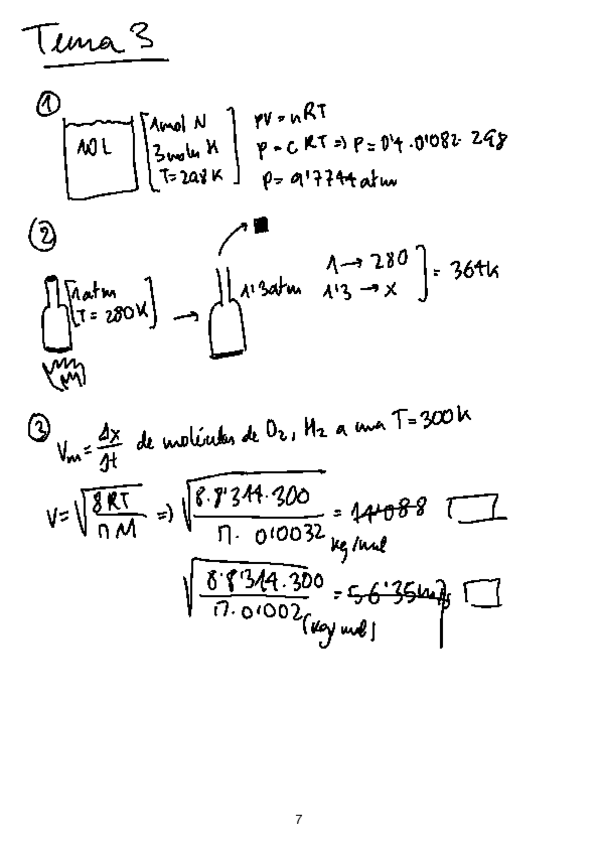 Tema 3
①
10 L
1 mol N
3 moles H
T = 298 K
PV = nRT
P = C RT => P = 0'4 · 0'082 · 298
P = 9'7744 atm
②
1 atm
T = 280 K
→
1'3 atm
1 → 280
1'3 → x
= 364 K
③ Vm = Δx/Δt de moléculas de O2, H2 a una T = 300 K
V = √8RT/πM => √8·8'314·300/π·0'0032 kg/mol = 14'088
√8·8'314·300/π·0'002 (kg/mol) = 56'35 m/s
7